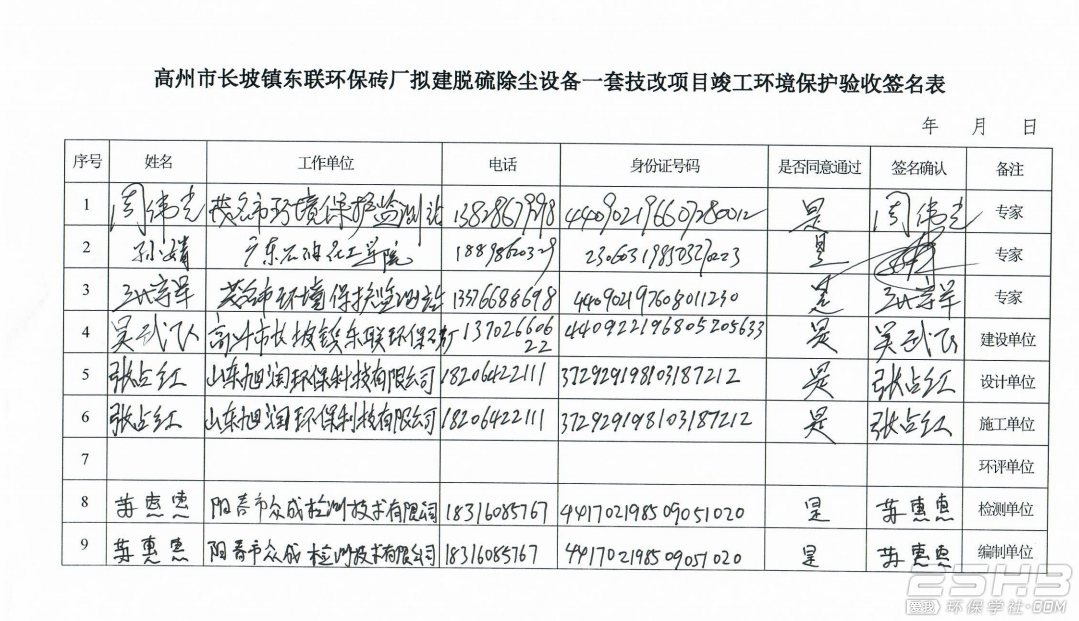 高州市长坡镇东联环保砖厂拟建脱硫除尘设备一套技改项目竣工环境保护验收签名表
年 月 日
序号 姓名 工作单位 电话 身份证号码 是否同意通过 签名确认 备注
1 周伟光 茂名市环境保护监测站 是 周伟光 专家
2 孙婧 广东石油化工学院 是 专家
3 茂名市环境保护监测站 13576688698 440902197608011230 是 专家
4 吴武飞 高州市长坡镇东联环保砖厂 13702660622 440922196805205633 是 吴武飞 建设单位
5 张占红 山东旭润环保科技有限公司 18206422111 372929198103187212 是 张占红 设计单位
6 张占红 山东旭润环保科技有限公司 18206422111 372929198103187212 是 张占红 施工单位
7 环评单位
8 苏惠惠 阳春市众成检测技术有限公司 18316085767 441702198509051020 是 苏惠惠 检测单位
9 苏惠惠 阳春市众成检测技术有限公司 18316085767 441702198509051020 是 苏惠惠 编制单位
25HB
爱我 环保学社·COM